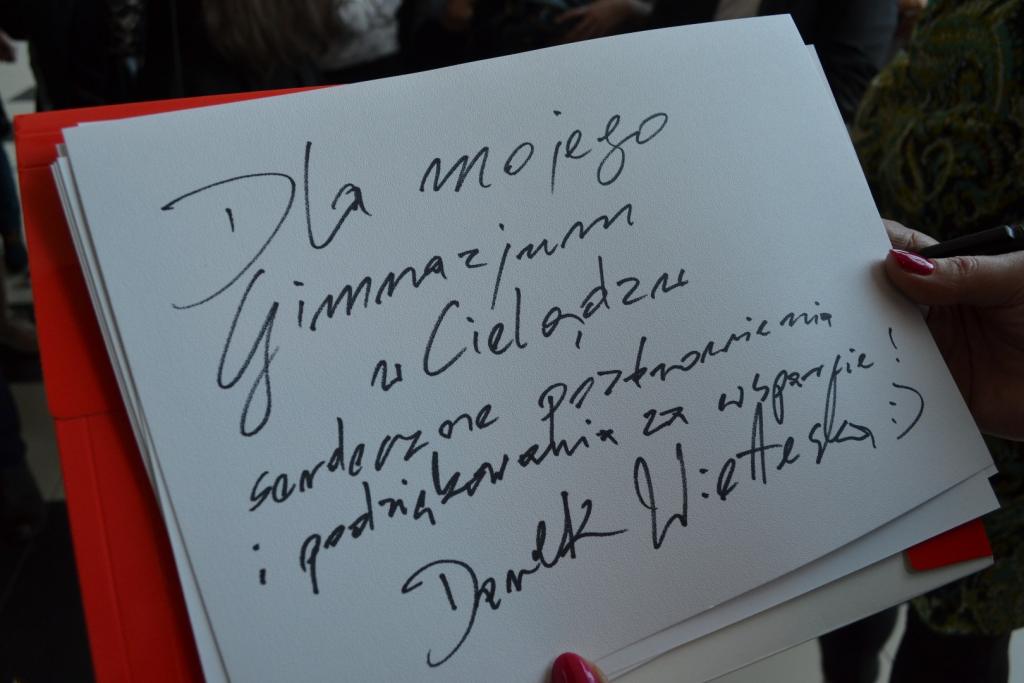 Dla mojego
Gimnazjum
w Cielądzu
serdeczne pozdrowienia
i podziękowania za wsparcie!
Darek Wietteska :)